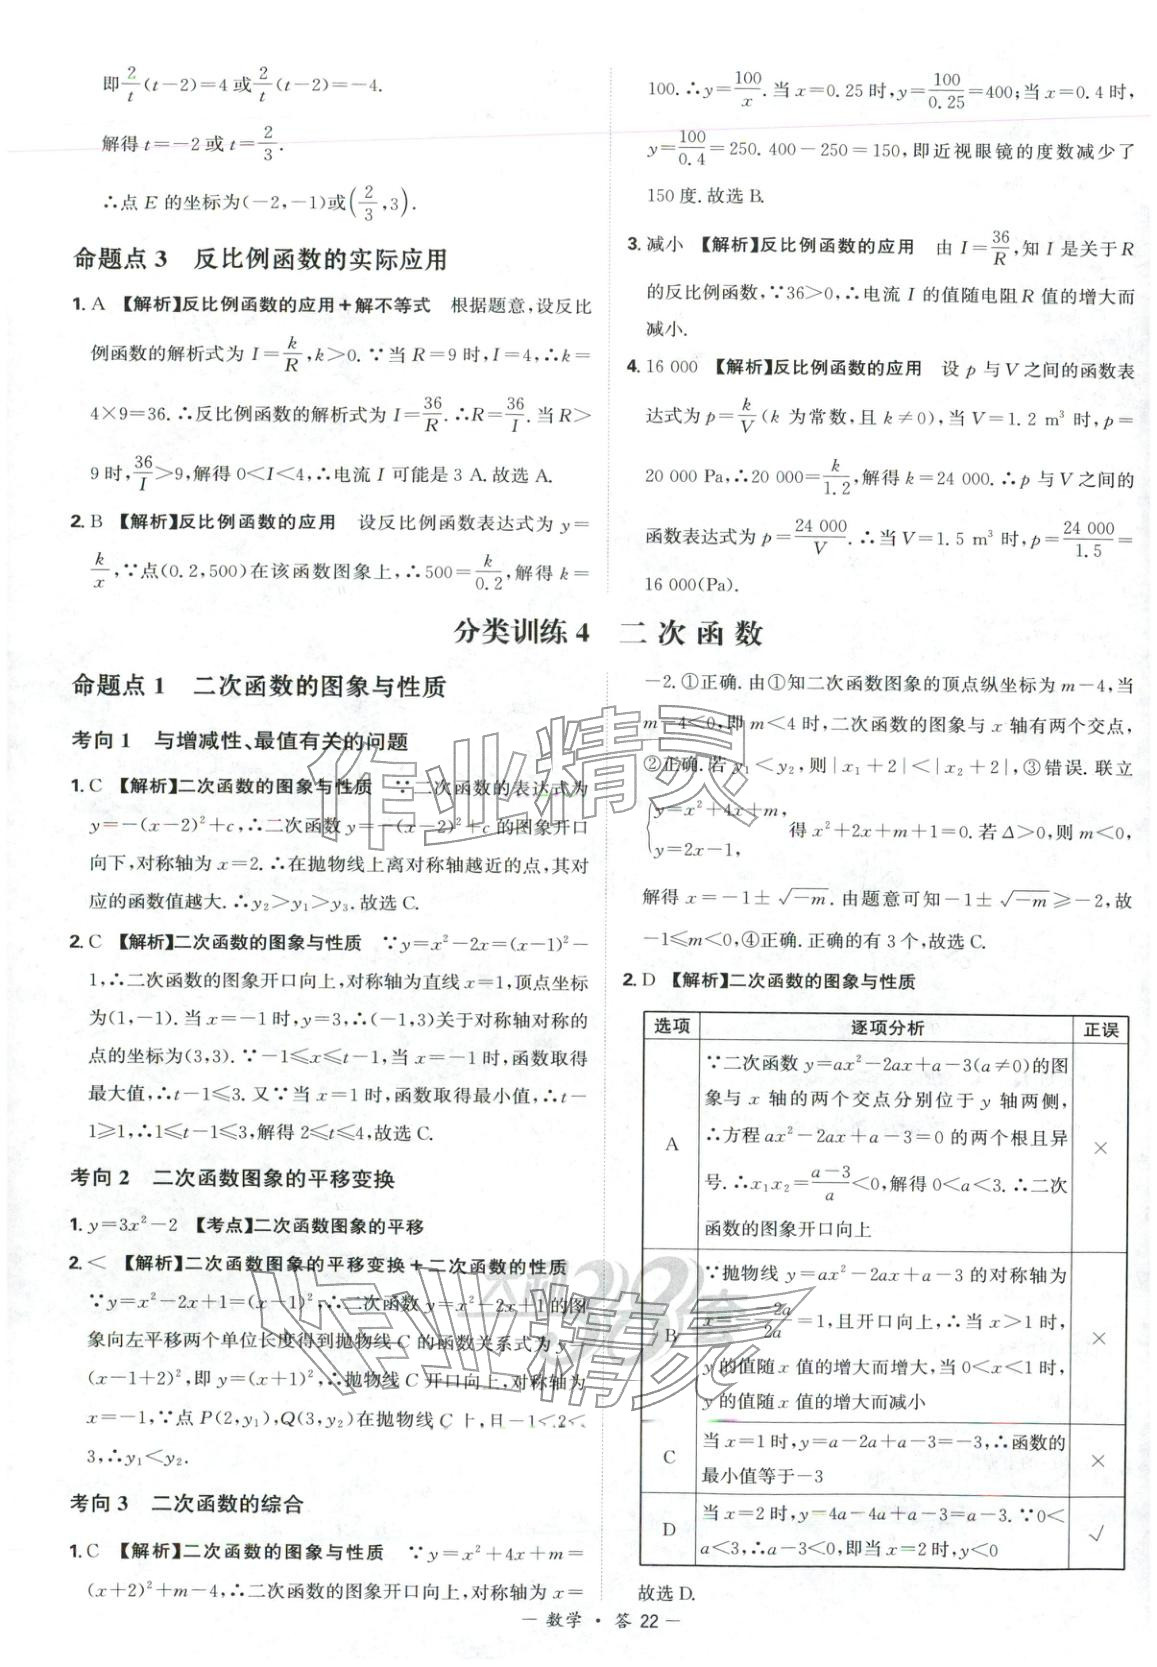 即2/t(t-2)=4 或2/t(t-2)=-4.
解得 t=-2 或 t=2/3.
∴点 E 的坐标为(-2,-1)或(2/3,3).
命题点 3　反比例函数的实际应用
1. A 【解析】反比例函数的应用+解不等式　根据题意,设反比
例函数的解析式为 I=k/R,k>0. ∵当 R=9 时,I=4,∴k=
4×9=36.∴反比例函数的解析式为 I=36/R.∴R=36/I. 当 R>
9 时,36/I>9,解得 0<I<4,∴电流 I 可能是 3 A.故选 A.
2. B 【解析】反比例函数的应用　设反比例函数表达式为 y=
k/x,∵点(0.2,500)在该函数图象上,∴500=k/0.2,解得 k=
100.∴y=100/x.当 x=0.25 时,y=100/0.25=400;当 x=0.4 时,
y=100/0.4=250.400-250=150,即近视眼镜的度数减少了
150 度.故选 B.
3. 减小 【解析】反比例函数的应用　由 I=36/R,知 I 是关于 R
的反比例函数,∵36>0,∴电流 I 的值随电阻 R 值的增大而
减小.
4. 16 000 【解析】反比例函数的应用　设 p 与 V 之间的函数表
达式为 p=k/V(k 为常数,且 k≠0),当 V=1.2 m³ 时,p=
20 000 Pa,∴20 000=k/1.2,解得 k=24 000.∴p 与 V 之间的
函数表达式为 p=24 000/V.∴当 V=1.5 m³ 时,p=24 000/1.5=
16 000(Pa).
分类训练 4　二次函数
命题点 1　二次函数的图象与性质
考向 1　与增减性、最值有关的问题
1. C 【解析】二次函数的图象与性质　∵二次函数的表达式为
y=-(x-2)²+c,∴二次函数 y=-(x-2)²+c 的图象开口
向下,对称轴为 x=2.∴在抛物线上离对称轴越近的点,其对
应的函数值越大.∴y₂>y₁>y₃.故选 C.
2. C 【解析】二次函数的图象与性质　∵y=x²-2x=(x-1)²-
1,∴二次函数的图象开口向上,对称轴为直线 x=1,顶点坐标
为(1,-1).当 x=-1 时,y=3,∴(-1,3)关于对称轴对称的
点的坐标为(3,3).∵-1≤x≤t-1,当 x=-1 时,函数取得
最大值,∴t-1≤3.又∵当 x=1 时,函数取得最小值,∴t-
1≥1,∴1≤t-1≤3,解得 2≤t≤4,故选 C.
考向 2　二次函数图象的平移变换
1. y=3x²-2 【考点】二次函数图象的平移
2. < 【解析】二次函数图象的平移变换+二次函数的性质
∵y=x²-2x+1=(x-1)²,∴二次函数 y=x²-2x+1 的图
象向左平移两个单位长度得到抛物线 C 的函数关系式为 y=
(x-1+2)²,即 y=(x+1)²,∴抛物线 C 开口向上,对称轴为
x=-1,∵点 P(2,y₁),Q(3,y₂)在抛物线 C 上,且-1<2<
3,∴y₁<y₂.
考向 3　二次函数的综合
1. C 【解析】二次函数的图象与性质　∵y=x²+4x+m=
(x+2)²+m-4,∴二次函数的图象开口向上,对称轴为 x=
-2.①正确.由①知二次函数图象的顶点纵坐标为 m-4,当
m-4<0,即 m<4 时,二次函数的图象与 x 轴有两个交点,
②正确.若 y₁<y₂,则|x₁+2|<|x₂+2|,③错误.联立
{y=x²+4x+m, y=2x-1, 得 x²+2x+m+1=0.若 Δ>0,则 m<0,
解得 x=-1±√-m.由题意可知-1±√-m≥-2,故
-1≤m<0,④正确.正确的有 3 个,故选 C.
2. D 【解析】二次函数的图象与性质
选项　逐项分析　正误
∵二次函数 y=ax²-2ax+a-3(a≠0)的图
象与 x 轴的两个交点分别位于 y 轴两侧,
A　∴方程 ax²-2ax+a-3=0 的两个根且异　×
号.∴x₁x₂=(a-3)/a<0,解得 0<a<3.∴二次
函数的图象开口向上
∵抛物线 y=ax²-2ax+a-3 的对称轴为
B　x=-(-2a)/2a=1,且开口向上,∴当 x>1 时,　×
y 的值随 x 值的增大而增大,当 0<x<1 时,
y 的值随 x 值的增大而减小
C　当 x=1 时,y=a-2a+a-3=-3,∴函数的　×
最小值等于-3
D　当 x=2 时,y=4a-4a+a-3=a-3.∵0<　√
a<3,∴a-3<0,即当 x=2 时,y<0
故选 D.
— 数学 · 答 22 —
作业精灵
作业精灵